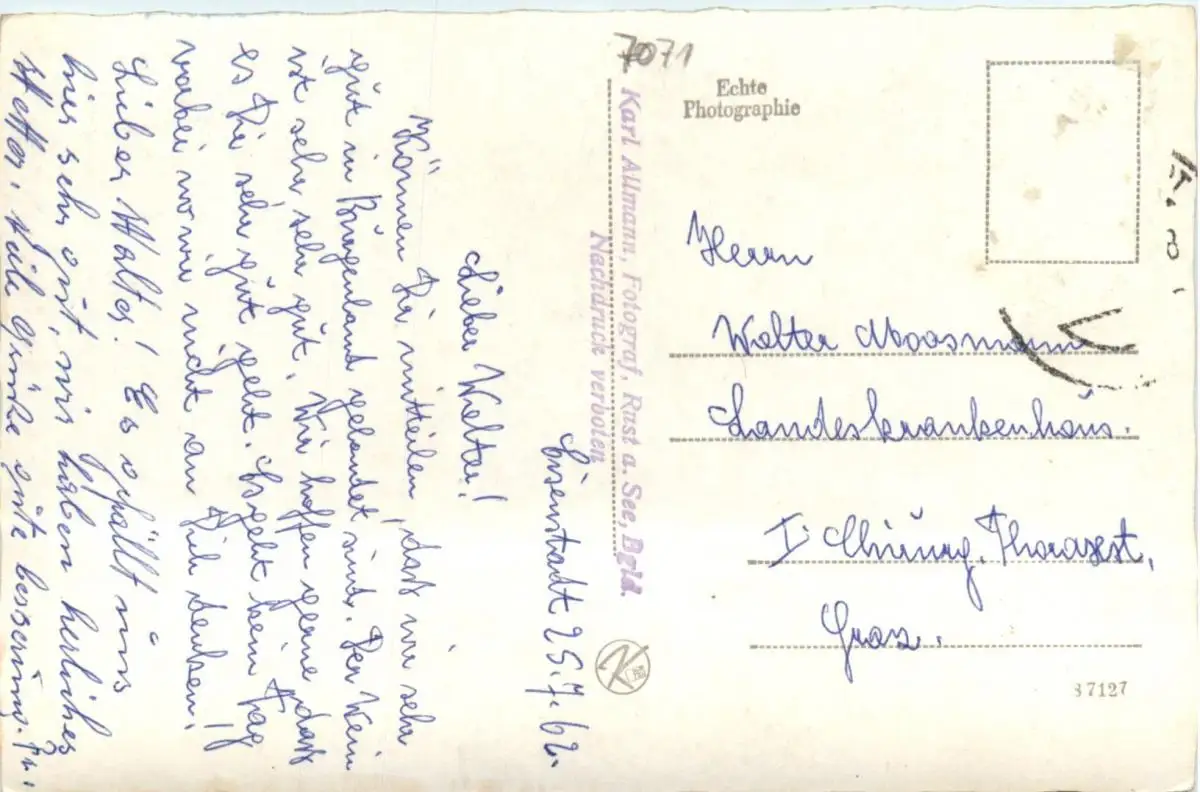 7071
Echte
Photographie
Karl Allmann, Fotograf, Rust a. See, Bgld.
Nachdruck verboten
Eisenstadt 25.7.62.
Lieber Walter!
Können Dir mitteilen, daß wir sehr
gut in Burgenland gelandet sind. Der Wein
ist sehr, sehr gut. Wir hoffen gerne daß
es Dir sehr gut geht. Es geht kein Tag
vorbei wo wir nicht an Dich denken!
Lieber Walter! Es gfällt uns
hier sehr gut, wir haben herliches
Wetter, viele Grüße gute besserung.
Herrn
Walter Moosmann
Landeskrankenhaus.
I. Chirurg. Thoraxst,
Graz.
87127